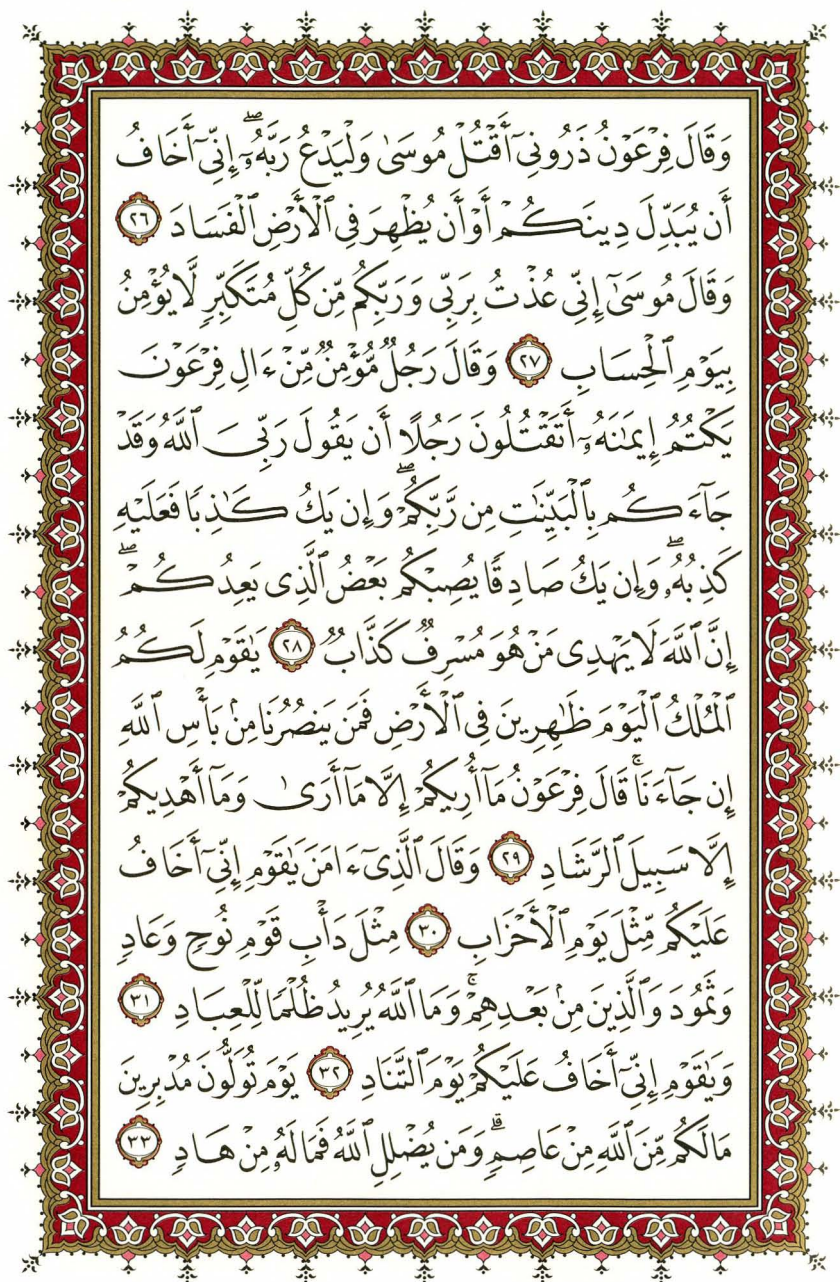 وَقَالَ فِرْعَوْنُ ذَرُونِىٓ أَقْتُلْ مُوسَىٰ وَلْيَدْعُ رَبَّهُۥٓ ۖ إِنِّىٓ أَخَافُ
أَن يُبَدِّلَ دِينَكُمْ أَوْ أَن يُظْهِرَ فِى ٱلْأَرْضِ ٱلْفَسَادَ ٢٦
وَقَالَ مُوسَىٰٓ إِنِّى عُذْتُ بِرَبِّى وَرَبِّكُم مِّن كُلِّ مُتَكَبِّرٍ لَّا يُؤْمِنُ
بِيَوْمِ ٱلْحِسَابِ ٢٧ وَقَالَ رَجُلٌ مُّؤْمِنٌ مِّنْ ءَالِ فِرْعَوْنَ
يَكْتُمُ إِيمَٰنَهُۥٓ أَتَقْتُلُونَ رَجُلًا أَن يَقُولَ رَبِّىَ ٱللَّهُ وَقَدْ
جَآءَكُم بِٱلْبَيِّنَٰتِ مِن رَّبِّكُمْ ۖ وَإِن يَكُ كَٰذِبًا فَعَلَيْهِ
كَذِبُهُۥ ۖ وَإِن يَكُ صَادِقًا يُصِبْكُم بَعْضُ ٱلَّذِى يَعِدُكُمْ ۖ
إِنَّ ٱللَّهَ لَا يَهْدِى مَنْ هُوَ مُسْرِفٌ كَذَّابٌ ٢٨ يَٰقَوْمِ لَكُمُ
ٱلْمُلْكُ ٱلْيَوْمَ ظَٰهِرِينَ فِى ٱلْأَرْضِ فَمَن يَنصُرُنَا مِنۢ بَأْسِ ٱللَّهِ
إِن جَآءَنَا ۚ قَالَ فِرْعَوْنُ مَآ أُرِيكُمْ إِلَّا مَآ أَرَىٰ وَمَآ أَهْدِيكُمْ
إِلَّا سَبِيلَ ٱلرَّشَادِ ٢٩ وَقَالَ ٱلَّذِىٓ ءَامَنَ يَٰقَوْمِ إِنِّىٓ أَخَافُ
عَلَيْكُم مِّثْلَ يَوْمِ ٱلْأَحْزَابِ ٣٠ مِثْلَ دَأْبِ قَوْمِ نُوحٍ وَعَادٍ
وَثَمُودَ وَٱلَّذِينَ مِنۢ بَعْدِهِمْ ۚ وَمَا ٱللَّهُ يُرِيدُ ظُلْمًا لِّلْعِبَادِ ٣١
وَيَٰقَوْمِ إِنِّىٓ أَخَافُ عَلَيْكُمْ يَوْمَ ٱلتَّنَادِ ٣٢ يَوْمَ تُوَلُّونَ مُدْبِرِينَ
مَا لَكُم مِّنَ ٱللَّهِ مِنْ عَاصِمٍ ۗ وَمَن يُضْلِلِ ٱللَّهُ فَمَا لَهُۥ مِنْ هَادٍ ٣٣